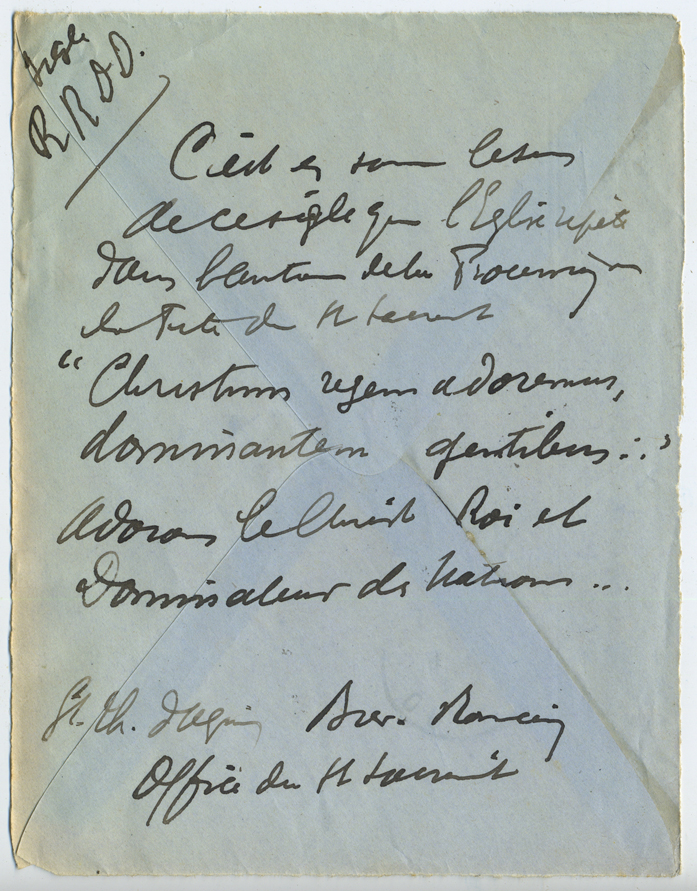 sigle
R R D D.
C'est en somme le sens
de ce sigle que l'Eglise répète
dans l'antienne de la Procession
la Fête du St Sacrement
"Christum regem adoremus,
dominantem gentibus..."
adorons le Christ Roi et
Dominateur des Nations...
St. Th. d'Aquin Brev. Romain
Office du St Sacrement